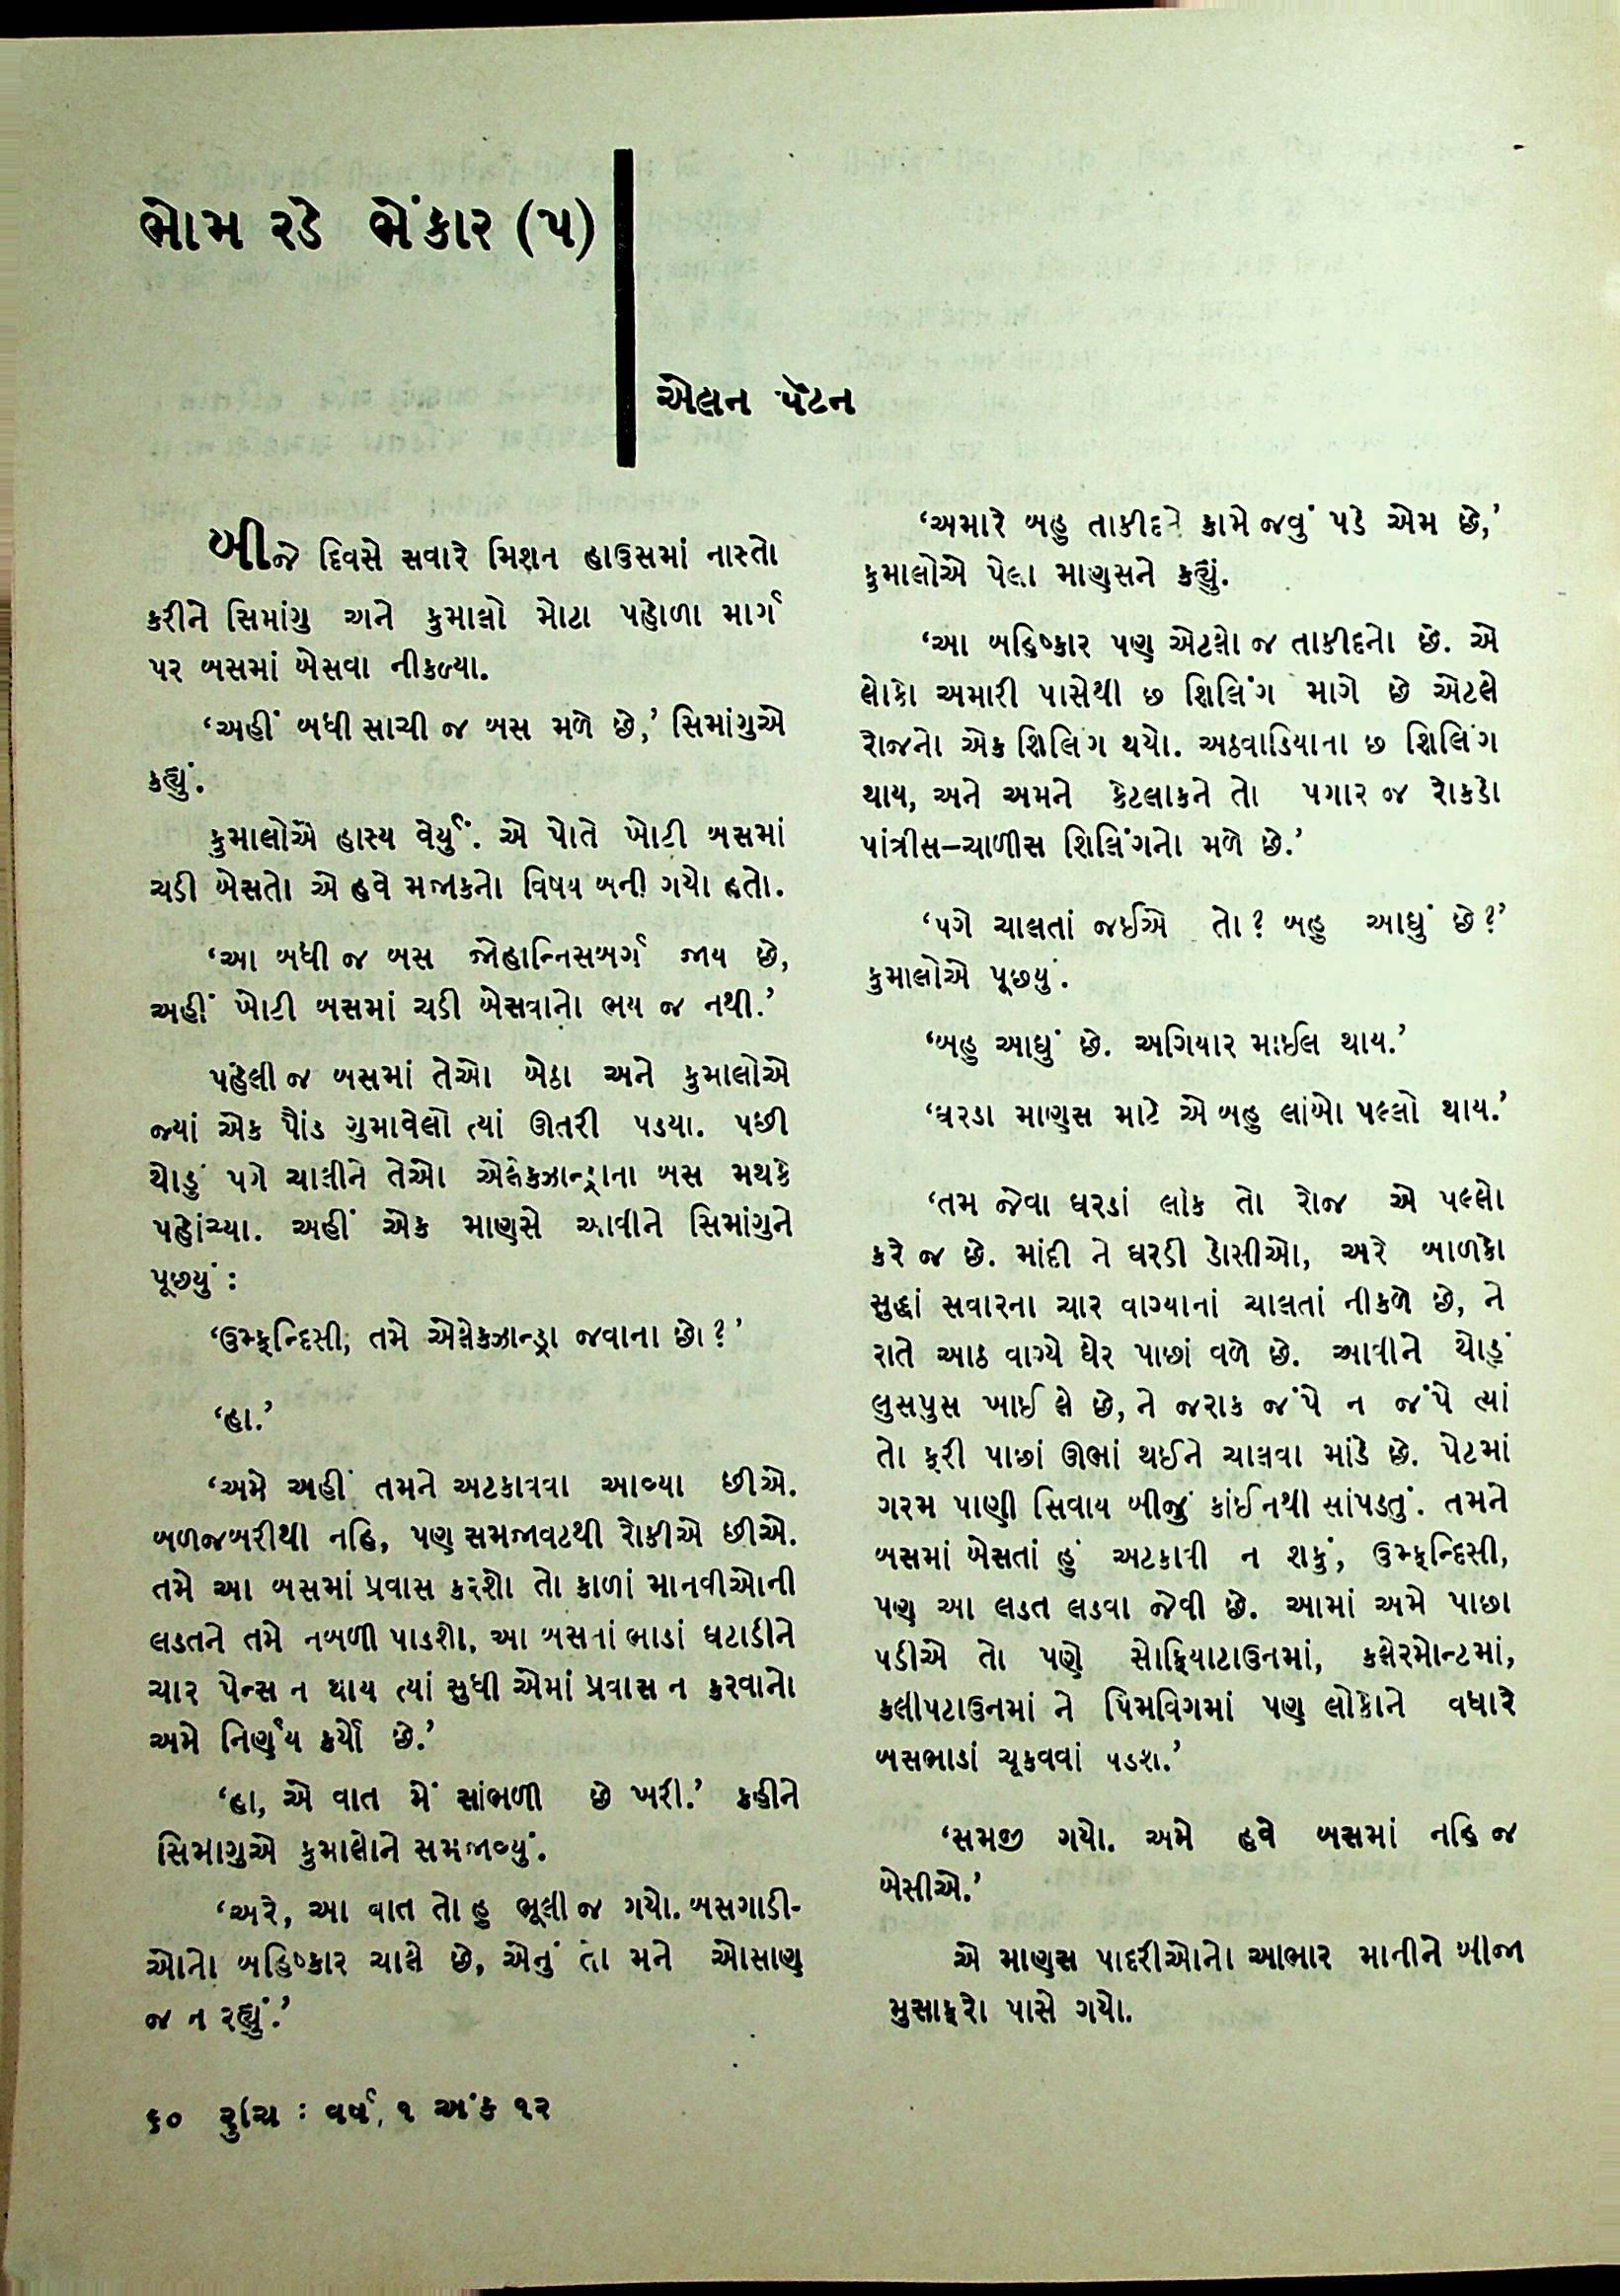 ભોમ રડે ભેંકાર (૫)
એલન પેટન
બીજે દિવસે સવારે મિશન હાઉસમાં નાસ્તો
કરીને સિમાંગુ અને કુમાલો મોટા પહોળા માર્ગ
પર બસમાં બેસવા નીકળ્યા.
‘અહીં બધી સાચી જ બસ મળે છે,’ સિમાંગુએ
કહ્યું.
કુમાલોએ હાસ્ય વેર્યું. એ પોતે ખોટી બસમાં
ચડી બેસતો એ હવે મજાકનો વિષય બની ગયો હતો.
‘આ બધી જ બસ જોહાન્નિસબર્ગ જાય છે,
અહીં ખોટી બસમાં ચડી બેસવાનો ભય જ નથી.’
પહેલી જ બસમાં તેઓ બેઠા અને કુમાલોએ
જ્યાં એક પૌંડ ગુમાવેલો ત્યાં ઊતરી પડયા. પછી
થોડું પગે ચાલીને તેઓ એલેકઝાન્ડ્રાના બસ મથકે
પહોંચ્યા. અહીં એક માણસે આવીને સિમાંગુને
પૂછયું :
‘ઉમ્ફન્દિસી, તમે એલેકઝાન્ડ્રા જવાના છો?’
‘હા.’
‘અમે અહીં તમને અટકાવવા આવ્યા છીએ.
બળજબરીથી નહિ, પણ સમજાવટથી રોકીએ છીએ.
તમે આ બસમાં પ્રવાસ કરશો તો કાળાં માનવીઓની
લડતને તમે નબળી પાડશો. આ બસનાં ભાડાં ઘટાડીને
ચાર પેન્સ ન થાય ત્યાં સુધી એમાં પ્રવાસ ન કરવાનો
અમે નિર્ણય કર્યો છે.’
‘હા, એ વાત મેં સાંભળી છે ખરી.’ કહીને
સિમાગુએ કુમાલોને સમજાવ્યું.
‘અરે, આ વાત તો હું ભૂલી જ ગયો. બસગાડી-
ઓનો બહિષ્કાર ચાલે છે, એનું તો મને ઓસાણ
જ ન રહ્યું.’
‘અમારે બહુ તાકીદને કામે જવું પડે એમ છે,’
કુમાલોએ પેલા માણસને કહ્યું.
‘આ બહિષ્કાર પણ એટલો જ તાકીદનો છે. એ
લોકો અમારી પાસેથી છ શિલિંગ માગે છે એટલે
રોજનો એક શિલિંગ થયો. અઠવાડિયાના છ શિલિંગ
થાય, અને અમને કેટલાકને તો પગાર જ રોકડો
પાંત્રીસ–ચાળીસ શિલિંગનો મળે છે.’
‘પગે ચાલતાં જઈએ તો? બહુ આઘું છે?’
કુમાલોએ પૂછયું.
‘બહુ આઘું છે. અગિયાર માઈલ થાય.’
‘ઘરડા માણસ માટે એ બહુ લાંબો પલ્લો થાય.’
‘તમ જેવા ઘરડાં લોક તો રોજ એ પલ્લો
કરે જ છે. માંદી ને ઘરડી ડોસીઓ, અરે બાળકો
સુદ્ધાં સવારના ચાર વાગ્યાનાં ચાલતાં નીકળે છે, ને
રાતે આઠ વાગ્યે ઘેર પાછાં વળે છે. આવીને થોડું
લુસપુસ ખાઈ લે છે, ને જરાક જંપે ન જંપે ત્યાં
તો ફરી પાછાં ઊભાં થઈને ચાલવા માંડે છે. પેટમાં
ગરમ પાણી સિવાય બીજું કાંઈ નથી સાંપડતું. તમને
બસમાં બેસતાં હું અટકાવી ન શકું, ઉમ્ફન્દિસી,
પણ આ લડત લડવા જેવી છે. આમાં અમે પાછા
પડીએ તો પણે સોફિયાટાઉનમાં, કલેરમોન્ટમાં,
કલીપટાઉનમાં ને પિમવિગમાં પણ લોકોને વધારે
બસભાડાં ચૂકવવાં પડશે.’
‘સમજી ગયો. અમે હવે બસમાં નહિ જ
બેસીએ.’
એ માણસ પાદરીઓનો આભાર માનીને બીજા
મુસાફરો પાસે ગયો.
૬૦ રુચિ : વર્ષ, ૧ અંક ૧૨